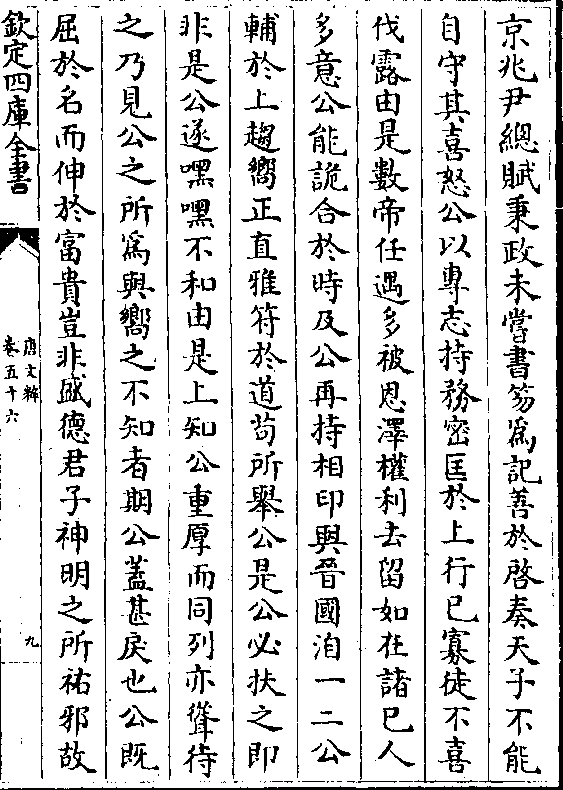 京兆尹總賦秉政未嘗書笏為記善於啓奏天子不能
自守其喜怒公以專志持務密匡於上行已寡徒不喜
伐露由是數帝任遇多被恩澤權利去留如在諸已人
多意公能詭合於時及公再持相印與晉國洎一二公
輔於上趨嚮正直雅符於道茍所舉公是公必扶之即
非是公遂嘿嘿不和由是上知公重厚而同列亦聳待
之乃見公之所為與嚮之不知者期公蓋甚戾也公既
屈於名而伸於富貴豈非盛德君子神明之所祐邪故
欽定四庫全書
唐文粹
卷五十六
九